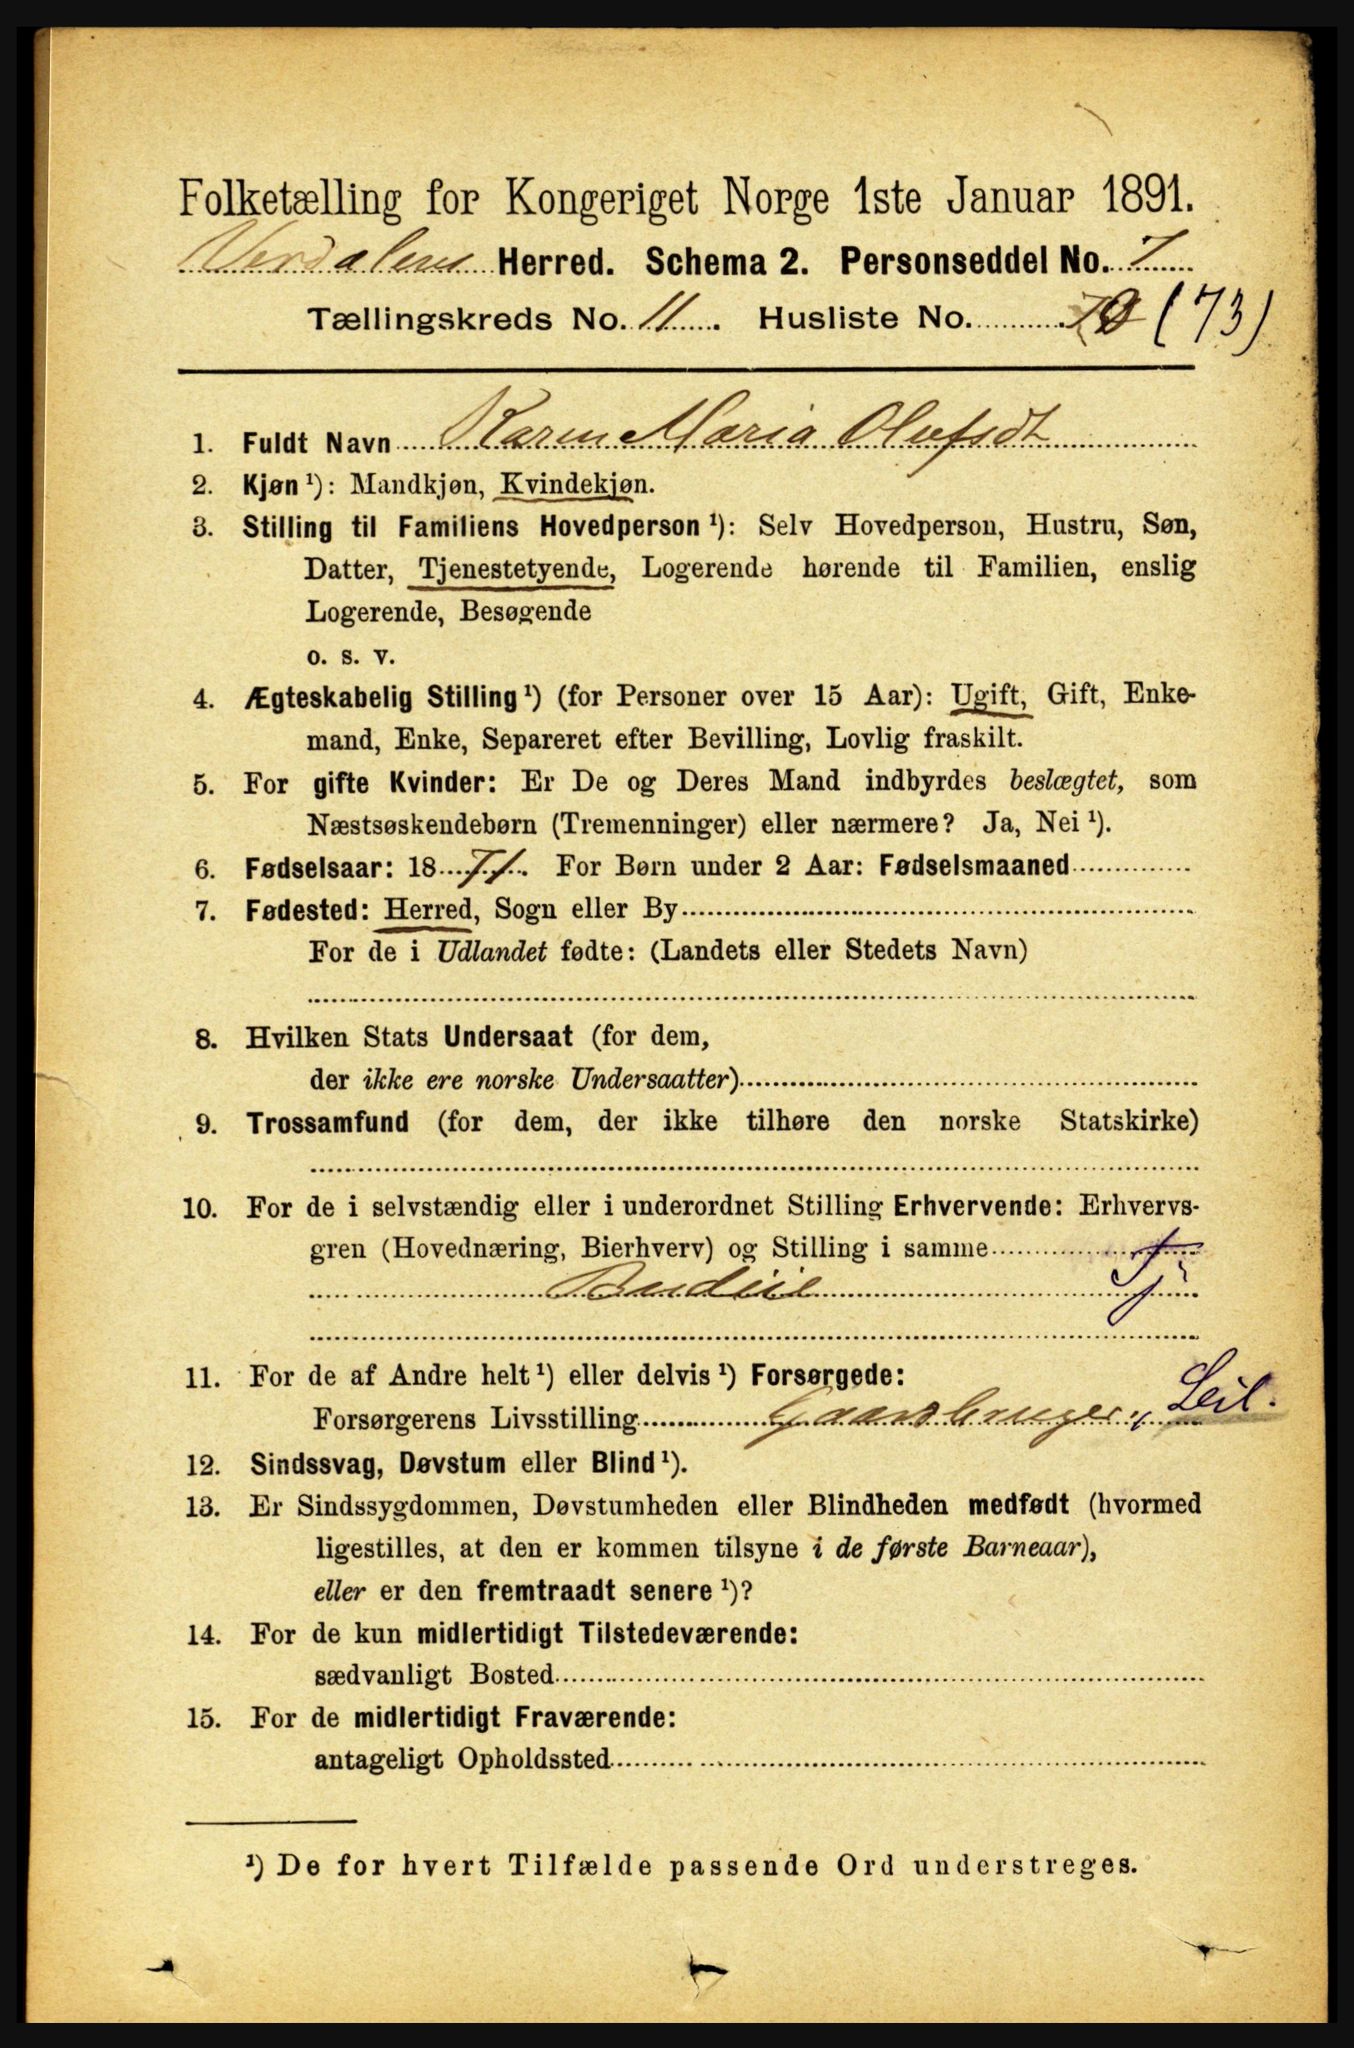 Folketælling for Kongeriget Norge 1ste Januar 1891.
Verdalens Herred. Schema 2. Personseddel No. 7
Tællingskreds No. 11. Husliste No. 70 (73)
1. Fuldt Navn Karen Maria Olufsdt
2. Kjøn ¹): Mandkjøn, Kvindekjøn.
3. Stilling til Familiens Hovedperson ¹): Selv Hovedperson, Hustru, Søn,
Datter, Tjenestetyende, Logerende hørende til Familien, enslig
Logerende, Besøgende
o. s. v.
4. Ægteskabelig Stilling ¹) (for Personer over 15 Aar): Ugift, Gift, Enke-
mand, Enke, Separeret efter Bevilling, Lovlig fraskilt.
5. For gifte Kvinder: Er De og Deres Mand indbyrdes beslægtet, som
Næstsøskendebørn (Tremenninger) eller nærmere? Ja, Nei ¹).
6. Fødselsaar: 1871. For Børn under 2 Aar: Fødselsmaaned
7. Fødested: Herred, Sogn eller By
For de i Udlandet fødte: (Landets eller Stedets Navn)
8. Hvilken Stats Undersaat (for dem,
der ikke ere norske Undersaatter)
9. Trossamfund (for dem, der ikke tilhøre den norske Statskirke)
10. For de i selvstændig eller i underordnet Stilling Erhvervende: Erhvervs-
gren (Hovednæring, Bierhverv) og Stilling i samme
Budeie Tj
11. For de af Andre helt ¹) eller delvis ¹) Forsørgede:
Forsørgerens Livsstilling Gaardbruger, Leil.
12. Sindssvag, Døvstum eller Blind ¹).
13. Er Sindssygdommen, Døvstumheden eller Blindheden medfødt (hvormed
ligestilles, at den er kommen tilsyne i de første Barneaar),
eller er den fremtraadt senere ¹)?
14. For de kun midlertidigt Tilstedeværende:
sædvanligt Bosted
15. For de midlertidigt Fraværende:
antageligt Opholdssted
¹) De for hvert Tilfælde passende Ord understreges.